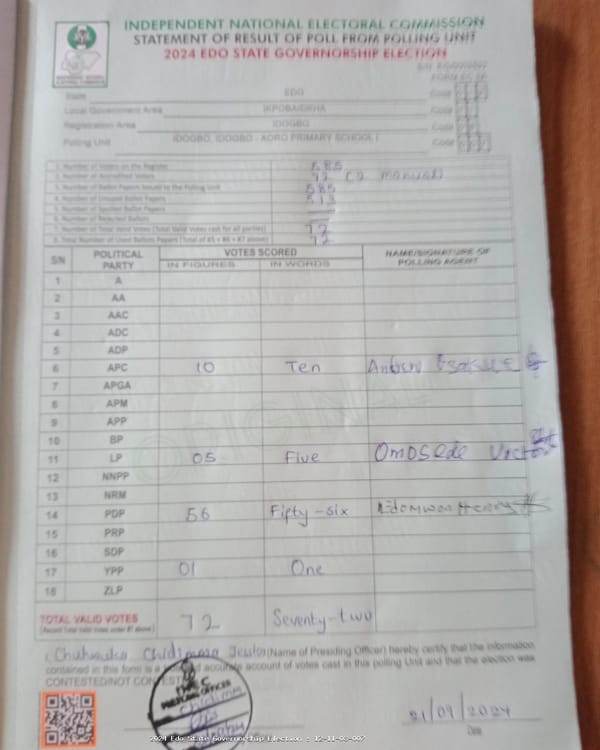 INDEPENDENT NATIONAL ELECTORAL COMMISSION
STATEMENT OF RESULT OF POLL FROM POLLING UNIT
2024 EDO STATE GOVERNORSHIP ELECTION
State EDO Code
Local Government Area IKPOBA/OKHA Code
Registration Area IDOGBO Code
Polling Unit IDOGBO, IDOGBO - ADRO PRIMARY SCHOOL I Code
1. Number of Voters on the Register 585
2. Number of Accredited Voters 72 (2 manual)
3. Number of Ballot Papers Issued to the Polling Unit 585
4. Number of Unused Ballot Papers 513
5. Number of Spoiled Ballot Papers
6. Number of Rejected Ballots
7. Number of Total Valid Votes (Total Valid Votes cast for all parties) 72
8. Total Number of Used Ballot Papers (Total of #5 + #6 + #7 above) 72
S/N POLITICAL PARTY VOTES SCORED NAME/SIGNATURE OF POLLING AGENT
IN FIGURES IN WORDS
1 A
2 AA
3 AAC
4 ADC
5 ADP
6 APC 10 Ten
7 APGA
8 APM
9 APP
10 BP
11 LP 05 Five Omosede Victor
12 NNPP
13 NRM
14 PDP 56 Fifty-six Edomwon Henry
15 PRP
16 SDP
17 YPP 01 One
18 ZLP
TOTAL VALID VOTES 72 Seventy-two
I, Chidimma (Name of Presiding Officer) hereby certify that the information
contained in this form is a accurate account of votes cast in this polling Unit and that the election was
CONTESTED/NOT CONTESTED
PRESIDING OFFICER
21/09/2024
Date
2024 Edo State Governorship Election : 12-11-03-007